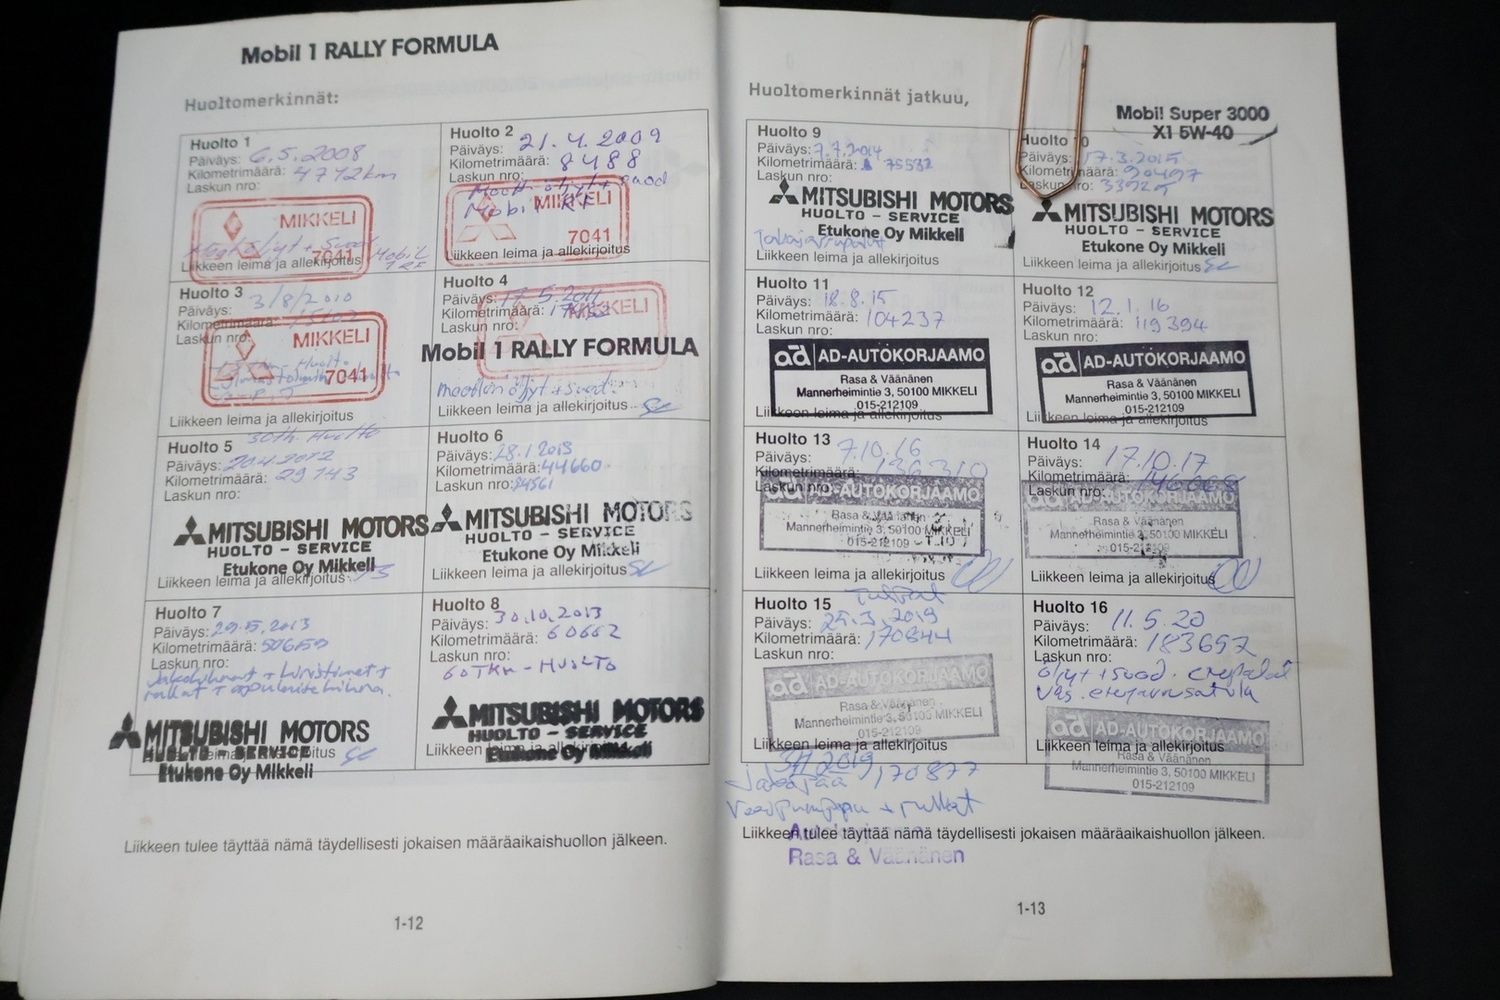 Mobil 1 RALLY FORMULA
Huoltomerkinnät:
Huolto 1
Päiväys: 6.5.2008
Kilometrimäärä: 4712km
Laskun nro:
MIKKELI
7041
Liikkeen leima ja allekirjoitus
Huolto 2
Päiväys: 21.4.2009
Kilometrimäärä: 8488
Laskun nro:
MIKKELI
7041
Liikkeen leima ja allekirjoitus
Huolto 3
Päiväys: 3/8/2010
Kilometrimäärä:
Laskun nro:
MIKKELI
7041
Liikkeen leima ja allekirjoitus
Huolto 4
Päiväys: 17.5.2011
Kilometrimäärä:
Laskun nro:
MIKKELI
Mobil 1 RALLY FORMULA
Liikkeen leima ja allekirjoitus
Huolto 5
30th. Huolto
Päiväys: 20.4.2012
Kilometrimäärä: 29743
Laskun nro:
MITSUBISHI MOTORS
HUOLTO - SERVICE
Etukone Oy Mikkeli
Liikkeen leima ja allekirjoitus
Huolto 6
Päiväys: 28.1.2013
Kilometrimäärä: 44660
Laskun nro:
MITSUBISHI MOTORS
HUOLTO - SERVICE
Etukone Oy Mikkeli
Liikkeen leima ja allekirjoitus
Huolto 7
Päiväys: 29.5.2013
Kilometrimäärä:
Laskun nro:
MITSUBISHI MOTORS
HUOLTO - SERVICE
Etukone Oy Mikkeli
Huolto 8
Päiväys: 30.10.2013
Kilometrimäärä: 60662
Laskun nro:
60TKM - HUOLTO
MITSUBISHI MOTORS
HUOLTO - SERVICE
Etukone Oy Mikkeli
Liikkeen tulee täyttää nämä täydellisesti jokaisen määräaikaishuollon jälkeen.
1-12
Huoltomerkinnät jatkuu,
Mobil Super 3000
X1 5W-40
Huolto 9
Päiväys: 7.7.2014
Kilometrimäärä: 75532
Laskun nro:
MITSUBISHI MOTORS
HUOLTO - SERVICE
Etukone Oy Mikkeli
Liikkeen leima ja allekirjoitus
Päiväys: 17.3.2015
Kilometrimäärä: 90497
Laskun nro:
MITSUBISHI MOTORS
HUOLTO - SERVICE
Etukone Oy Mikkeli
Liikkeen leima ja allekirjoitus
Huolto 11
Päiväys: 18.8.15
Kilometrimäärä: 104237
Laskun nro:
ad AD-AUTOKORJAAMO
Rasa & Väänänen
Mannerheimintie 3, 50100 MIKKELI
015-212109
Liikkeen leima ja allekirjoitus
Huolto 12
Päiväys: 12.1.16
Kilometrimäärä: 119394
Laskun nro:
ad AD-AUTOKORJAAMO
Rasa & Väänänen
Mannerheimintie 3, 50100 MIKKELI
015-212109
Liikkeen leima ja allekirjoitus
Huolto 13
Päiväys: 7.10.16
Kilometrimäärä: 136310
Laskun nro:
ad AD-AUTOKORJAAMO
Rasa & Väänänen
Mannerheimintie 3, 50100 MIKKELI
015-212109
Liikkeen leima ja allekirjoitus
Huolto 14
Päiväys: 17.10.17
Kilometrimäärä:
Laskun nro:
ad AD-AUTOKORJAAMO
Rasa & Väänänen
Mannerheimintie 3, 50100 MIKKELI
015-212109
Liikkeen leima ja allekirjoitus
Huolto 15
Päiväys: 25.3.2019
Kilometrimäärä: 170844
Laskun nro:
ad AD-AUTOKORJAAMO
Rasa & Väänänen
Mannerheimintie 3, 50100 MIKKELI
015-212109
Liikkeen leima ja allekirjoitus
Huolto 16
Päiväys: 11.5.20
Kilometrimäärä: 183692
Laskun nro:
öljyt + suod.
ad AD-AUTOKORJAAMO
Rasa & Väänänen
Mannerheimintie 3, 50100 MIKKELI
015-212109
Liikkeen leima ja allekirjoitus
2019, 170877
Jakopää
Vesipumppu + rullat
Liikkeen tulee täyttää nämä täydellisesti jokaisen määräaikaishuollon jälkeen.
Rasa & Väänänen
1-13